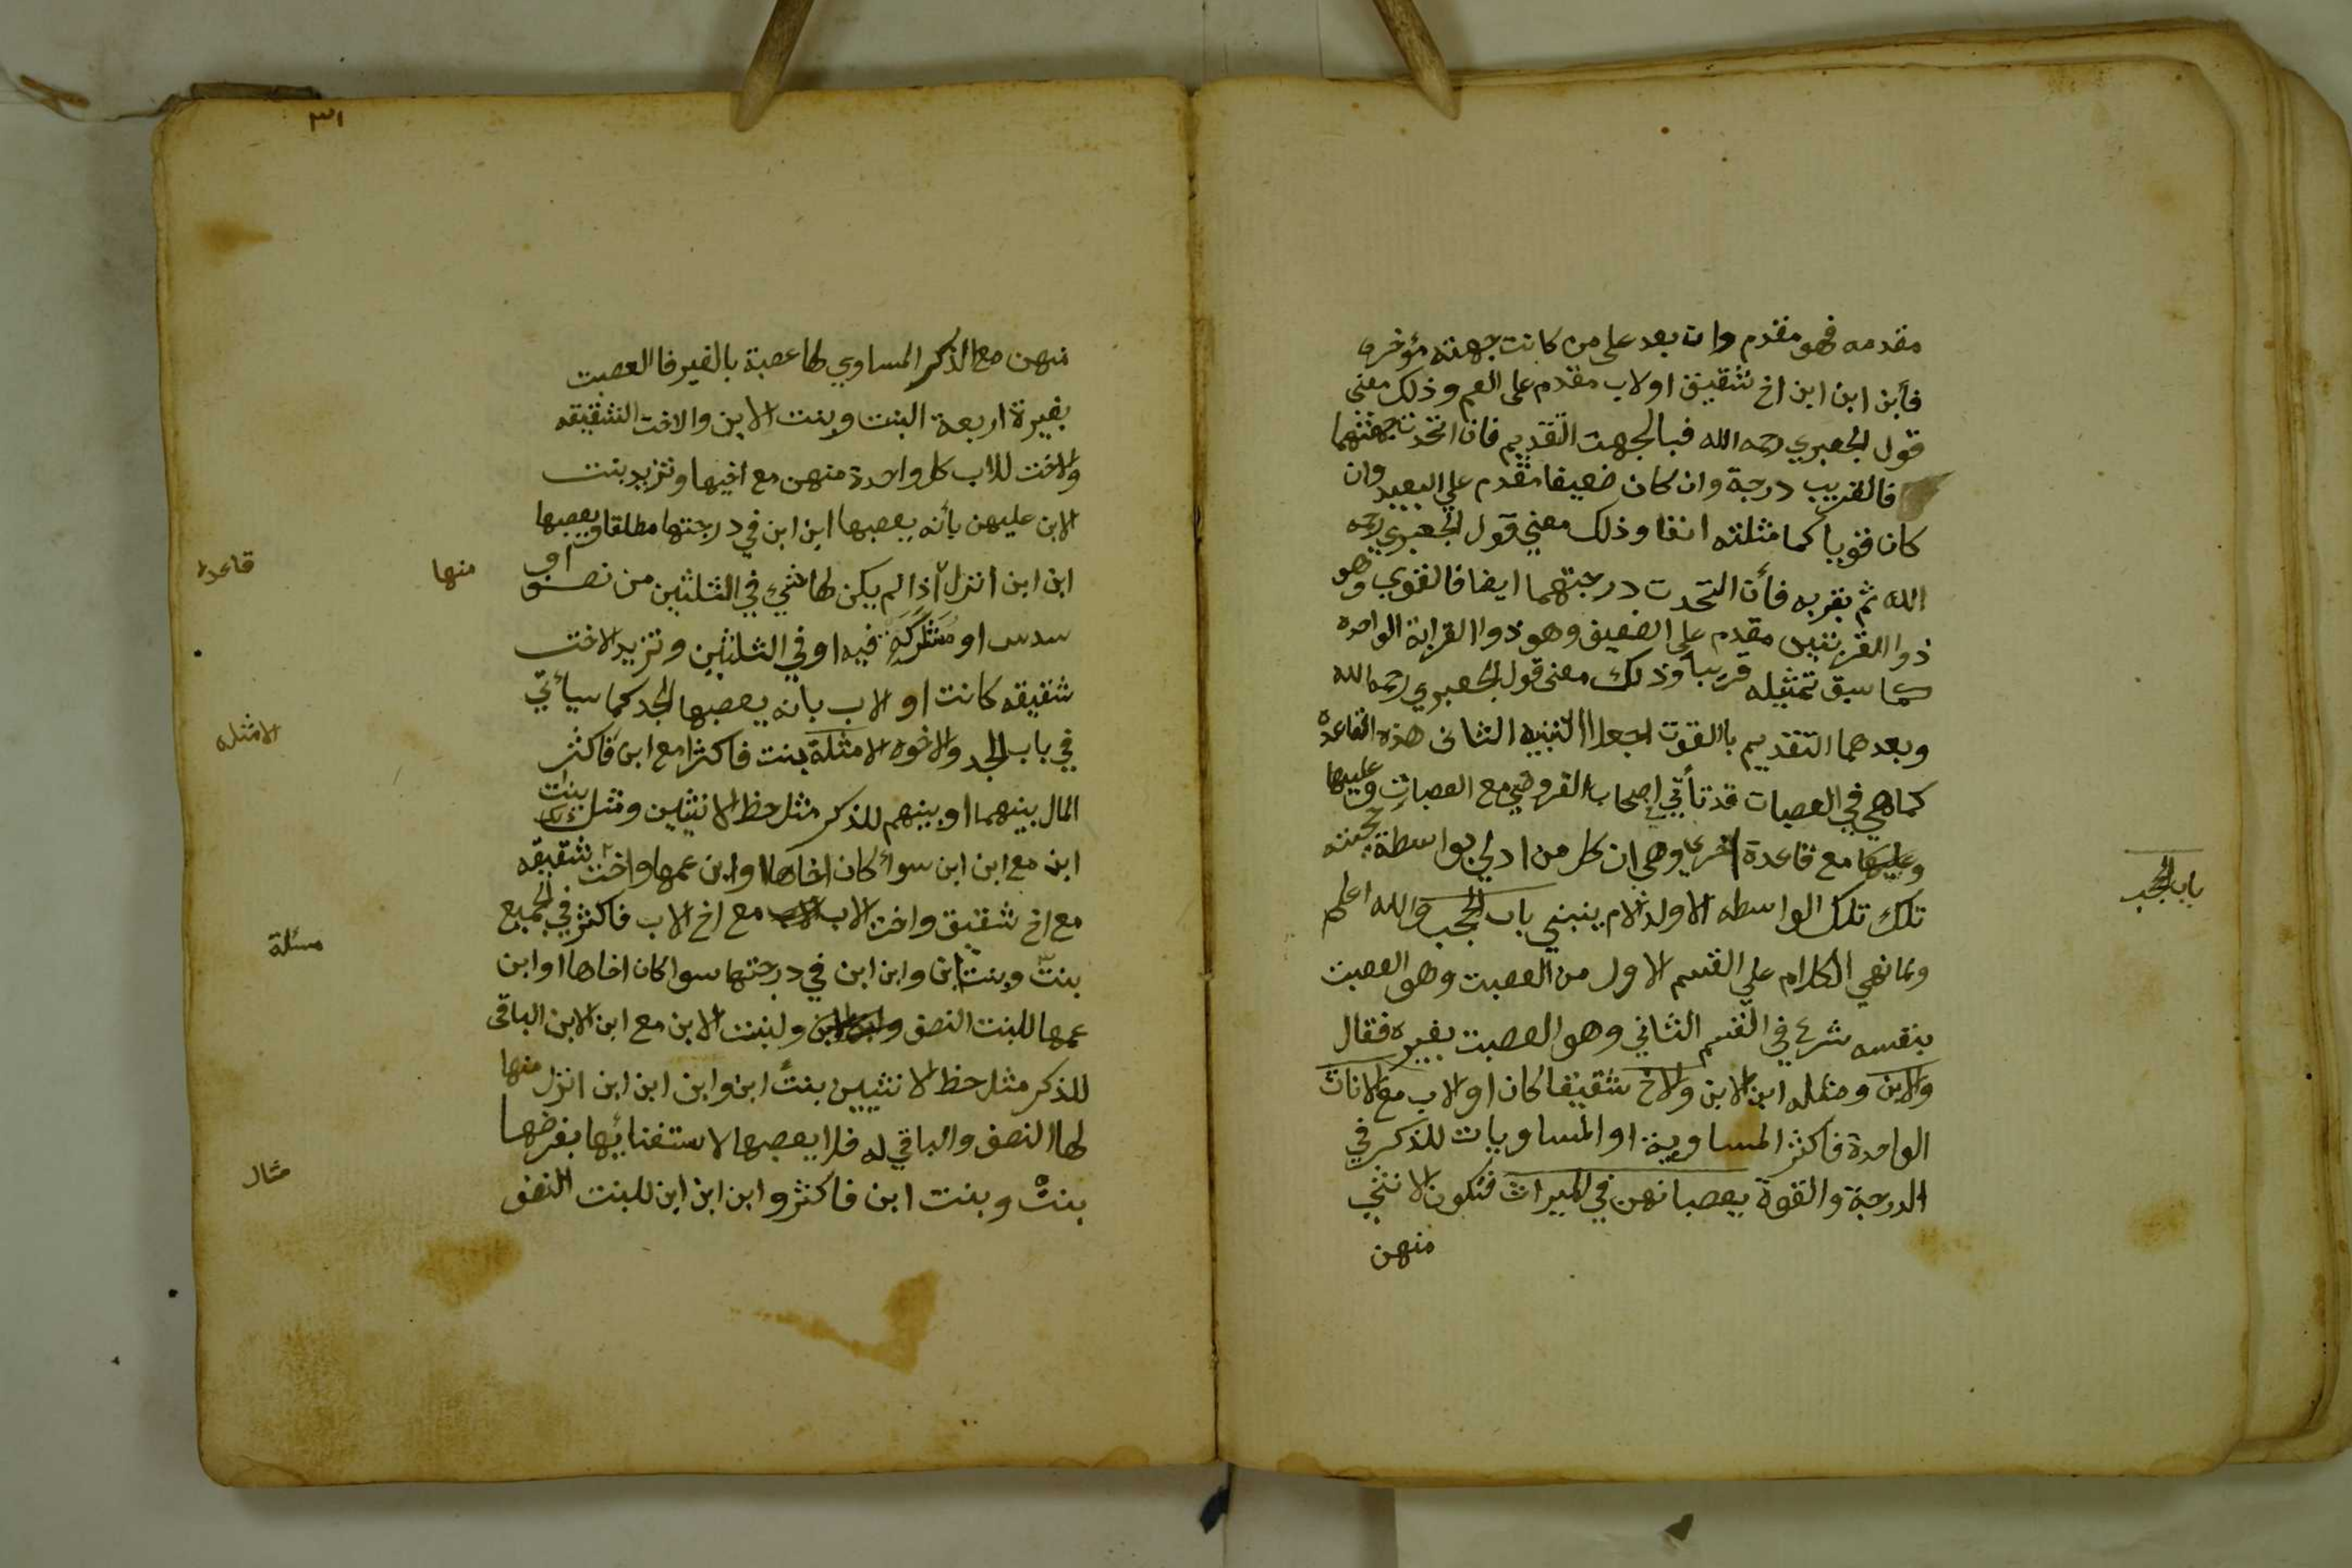 مقدمه فهو مقدم وان بعد على من كانت جهته مؤخره
فأبن ابن ابن اخ شقيق او لاب مقدم على العم وذلك معنى
قول الجعبري رحمه الله فبالجهت التقديم فان اتحدت جهتهما
فالقريب درجة وان كان ضعيفا مقدم علي البعيد وان
كان قويا كما مثلته انفا وذلك معني قول الجعبري رحمه
الله ثم بقربه فأن التحدت درجتهما ايضا فالقوي وهو
ذوا القربتين مقدم على الضعيف وهو ذوا القرابة الواحده
كما سبق تمثيله قريبا وذلك معنى قول الجعبري رحمه الله
وبعدهما التقديم بالقوت اجعلا التنبيه الثاني هذه القاعدة
كما هي في العصبات قد تأتي في اصحاب الفروض مع العصبات وعليها
وعليها مع قاعدة اخرى وهي ان كل من ادلي بواسطة حجبته
تلك تلك الواسطه الا ولد الام ينبني باب الحجب والله اعلم
ولما نهي الكلام علي القسم الاول من العصبت وهو العصبت
بنفسه شرع في القسم الثاني وهو العصبت بغيره فقال
والابن ومثله ابن الابن والاخ شقيقا كان او لاب مع الاناث
الواحدة فاكثر المساوية او المساويات للذكر في
الدرجة والقوة يعصبانهن في الميراث فتكون الانثي
منهن
باب الحجب
٣١
منهن مع الذكر المساوي لها عصبة بالغير فا العصبت
بغيرة اربعة البنت وبنت الابن والاخت الشقيقه
والاخت للاب كل واحدة منهن مع اخيها وتزيد بنت
الابن عليهن بأنه يعصبها ابن ابن في درجتها مطلقا ويعصبها
ابن ابن انزل اذا لم يكن لها شيء في الثلثين من نصف او
منها
قاعدة
سدس او مشاركة فيه او في الثلثين وتزيد الاخت
شقيقه كانت او لاب بانه يعصبها الجد كما سيأتي
في باب الجد والاخوه الامثلة بنت فاكثر مع ابن فاكثر
الامثله
المال بينهما او بينهم للذكر مثل حظ الانثيين ومثل بنت
ابن مع ابن ابن سوائ كان اخاها او ابن عمها واخت شقيقه
مع اخ شقيق واخت لاب مع اخ لاب فاكثر في الجميع
مسئلة
بنت وبنت ابن وابن ابن في درجتها سوا كان اخاها او ابن
عمها للبنت النصف ولبنت الابن مع ابن الابن الباقي
للذكر مثل حظ الانثيين بنت ابن وابن ابن ابن انزل منها
لها النصف والباقي له فلا يعصبها لاستغنائها بفرضها
مثال
بنت وبنت ابن فاكثر وابن ابن ابن للبنت النصف